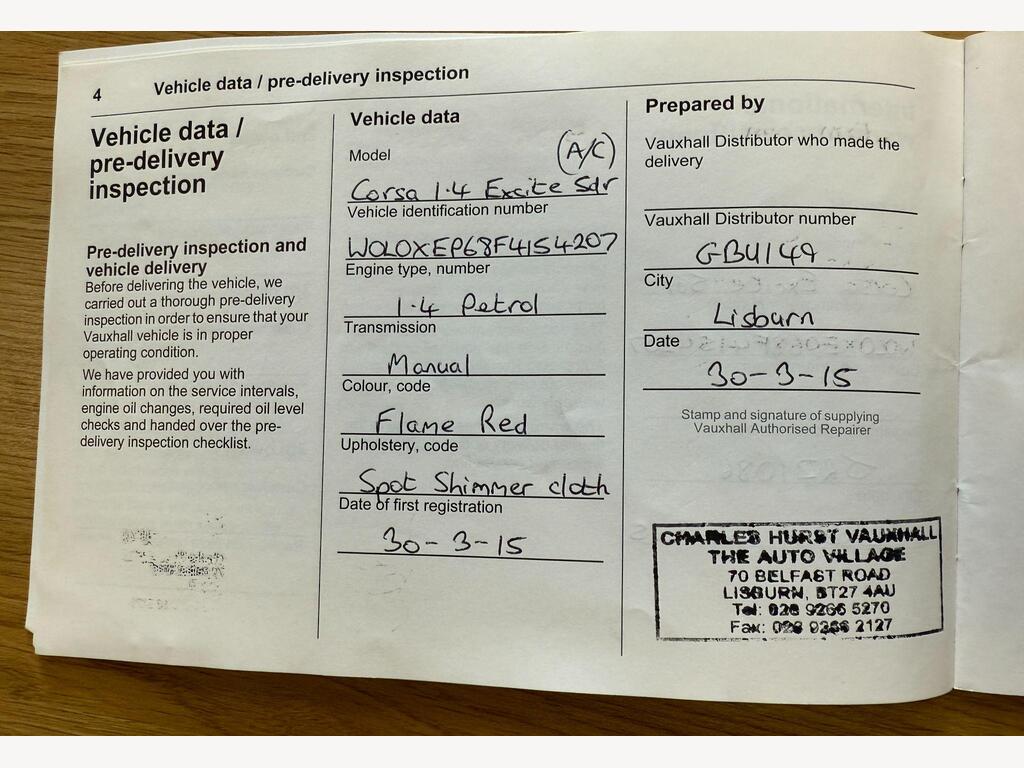 4 Vehicle data / pre-delivery inspection
Vehicle data /
pre-delivery
inspection
Pre-delivery inspection and
vehicle delivery
Before delivering the vehicle, we
carried out a thorough pre-delivery
inspection in order to ensure that your
Vauxhall vehicle is in proper
operating condition.
We have provided you with
information on the service intervals,
engine oil changes, required oil level
checks and handed over the pre-
delivery inspection checklist.
Vehicle data
Model (A/C)
Corsa 1.4 Excite 5dr
Vehicle identification number
W0L0XEP68F4154207
Engine type, number
1.4 Petrol
Transmission
Manual
Colour, code
Flame Red
Upholstery, code
Spot Shimmer cloth
Date of first registration
30-3-15
Prepared by
Vauxhall Distributor who made the
delivery
Vauxhall Distributor number
GB4149
City
Lisburn
Date
30-3-15
Stamp and signature of supplying
Vauxhall Authorised Repairer
CHARLES HURST VAUXHALL
THE AUTO VILLAGE
70 BELFAST ROAD
LISBURN, BT27 4AU
Tel: 028 9266 5270
Fax: 028 9266 2127